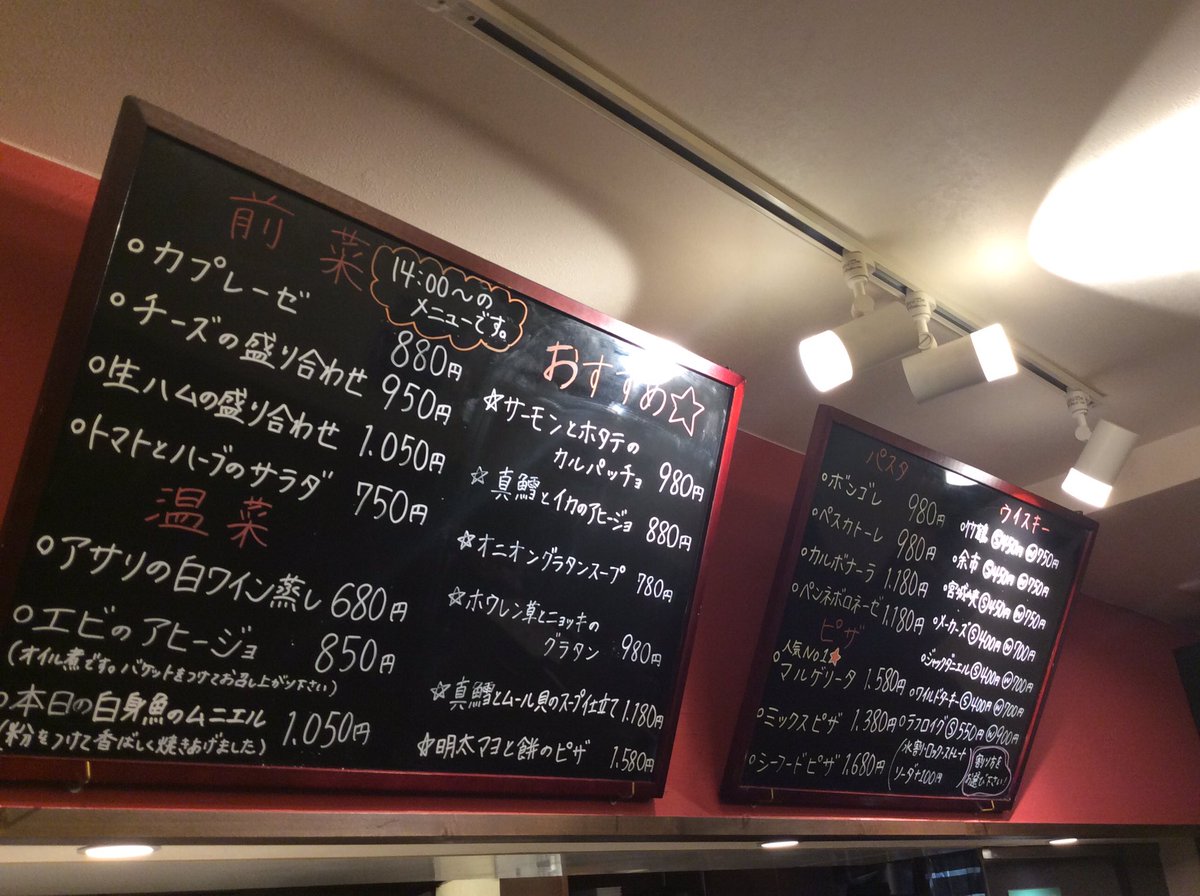 前菜
14:00〜の
メニューです。
○カプレーゼ 880円
○チーズの盛り合わせ 950円
○生ハムの盛り合わせ 1.050円
○トマトとハーブのサラダ 750円
温菜
○アサリの白ワイン蒸し 680円
○エビのアヒージョ 850円
(オイル煮です。バケットをつけてお召し上がり下さい)
○本日の白身魚のムニエル 1.050円
(粉をつけて香ばしく焼きあげました)
おすすめ☆
☆サーモンとホタテの
カルパッチョ 980円
☆真鱈とイカのアヒージョ 880円
☆オニオングラタンスープ 780円
☆ホウレン草とニョッキの
グラタン 980円
☆真鱈とムール貝のスープ仕立て 1.180円
☆明太マヨと餅のピザ 1.580円
パスタ
○ボンゴレ 980円
○ペスカトーレ 980円
○カルボナーラ 1.180円
○ペンネボロネーゼ 1.180円
ピザ
人気No1☆
○マルゲリータ 1.580円
○ミックスピザ 1.380円
○シーフードピザ 1.680円
ウイスキー
○竹鶴 Ⓢ450円 Ⓦ750円
○余市 Ⓢ450円 Ⓦ750円
○宮城峡 Ⓢ450円 Ⓦ750円
○メーカーズ Ⓢ400円 Ⓦ700円
○ジャックダニエル Ⓢ400円 Ⓦ700円
○ワイルドターキー Ⓢ400円 Ⓦ700円
○ラフロイグ Ⓢ550円 Ⓦ900円
(水割り・ロック・ストレート
ソーダ+100円)
割り方を
お選び下さい!